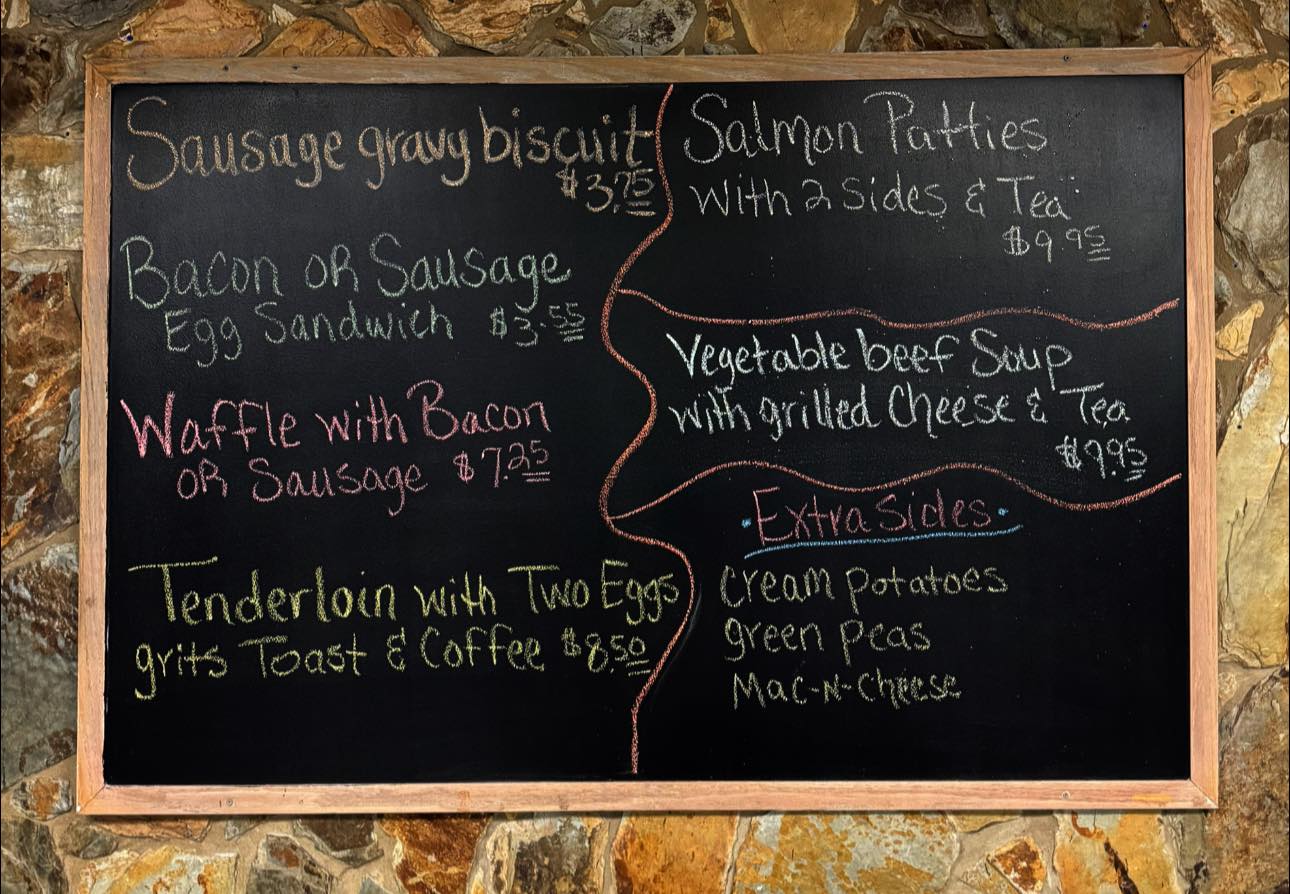 Sausage gravy biscuit
$3.75
Bacon oR Sausage
Egg Sandwich $3.55
Waffle with Bacon
oR Sausage $7.25
Tenderloin with Two Eggs
grits Toast & Coffee $8.50
Salmon Patties
with 2 Sides & Tea
$9.95
Vegetable beef Soup
with grilled Cheese & Tea
$9.95
•Extra Sides•
Cream potatoes
green peas
Mac-N-Cheese